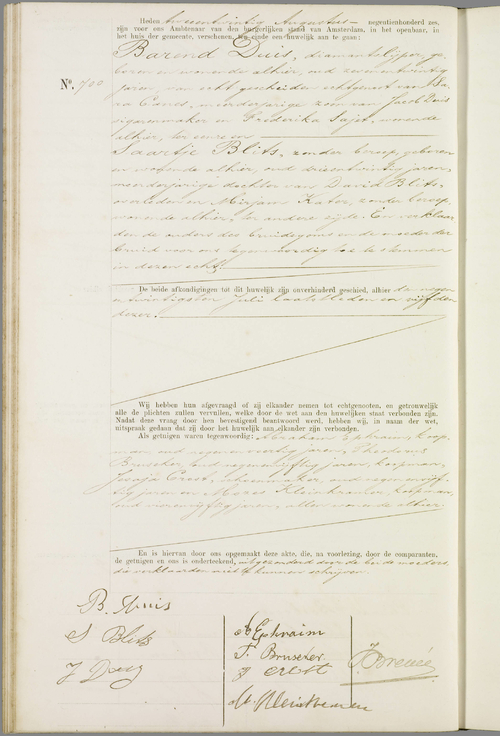 Heden tweeentwintig Augustus negentienhonderd zes,
zijn voor ons Ambtenaar van den burgerlijken stand van Amsterdam, in het openbaar, in
het huis der gemeente, verschenen, ten einde een huwelijk aan te gaan:
Barend Duis, diamantslijper, ge-
No. 700
boren en wonende alhier, oud zevenentwintig
jaren, van echt gescheiden echtgenoot van Sa-
ra Cauves, meerderjarige zoon van Jacob Duis
sigarenmaker en Frederika Sajet, wonende
alhier, ter eenre en
Saartje Blits, zonder beroep, geboren
en wonende alhier, oud drieentwintig jaren,
meerderjarige dochter van David Blits,
overleden en Mirjam Kater, zonder beroep,
wonende alhier, ter andere zijde. En verklaar-
den de ouders des bruidegoms en de moeder der
bruid voor ons tegenwoordig toe te stemmen
in dezen echt.
De beide afkondigingen tot dit huwelijk zijn onverhinderd geschied, alhier den negen
en twintigsten Juli laatstleden en vijfden
dezer.
Wij hebben hun afgevraagd of zij elkander nemen tot echtgenooten, en getrouwelijk
alle de plichten zullen vervullen, welke door de wet aan den huwelijken staat verbonden zijn.
Nadat deze vraag door hen bevestigend beantwoord werd, hebben wij, in naam der wet,
uitspraak gedaan dat zij door het huwelijk aan elkander zijn verbonden.
Als getuigen waren tegenwoordig: Abraham Ephraim, koop-
man, oud negenenveertig jaren, Theodorus
Bruseker, oud negenenvijftig jaren, koopman,
Jesaja Crest, schoenmaker, oud negenenvijf-
tig jaren en Mozes Kleinkramer, koopman,
oud vierenvijftig jaren, allen wonende alhier.
En is hiervan door ons opgemaakt deze akte, die, na voorlezing, door de comparanten,
de getuigen en ons is onderteekend, uitgezonderd door de beide moeders,
die verklaarden niet te kunnen schrijven.
B. Duis
S Blits
J Duis
A Ephraim
T. Bruseker
J Crest
M. Kleinkramer